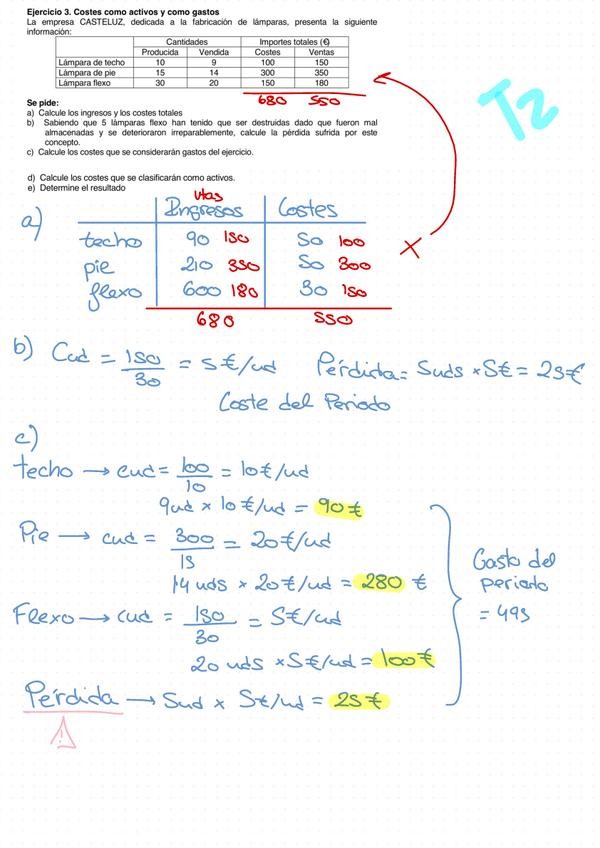 Ejercicio 3. Costes como activos y como gastos
La empresa CASTELUZ, dedicada a la fabricación de lámparas, presenta la siguiente
información:
Cantidades Importes totales (€)
Producida Vendida Costes Ventas
Lámpara de techo 10 9 100 150
Lámpara de pie 15 14 300 350
Lámpara flexo 30 20 150 180
680 550
T2
Se pide:
a) Calcule los ingresos y los costes totales
b) Sabiendo que 5 lámparas flexo han tenido que ser destruidas dado que fueron mal
almacenadas y se deterioraron irreparablemente, calcule la pérdida sufrida por este
concepto.
c) Calcule los costes que se considerarán gastos del ejercicio.
d) Calcule los costes que se clasificarán como activos.
e) Determine el resultado
a)
Vtas
Ingresos Costes
techo 90 150 50 100
pie 210 350 50 300
flexo 600 180 30 150
680 550
b) Cud = 150/30 = 5€/ud Pérdida = 5uds × 5€ = 25€
Coste del Periodo
c)
techo → cud = 100/10 = 10€/ud
9ud × 10€/ud = 90€
Pie → cud = 300/15 = 20€/ud
14 uds × 20€/ud = 280€
Flexo → cud = 150/30 = 5€/ud
20 uds × 5€/ud = 100€
Pérdida → 5ud × 5€/ud = 25€
Gasto del
periodo
= 495